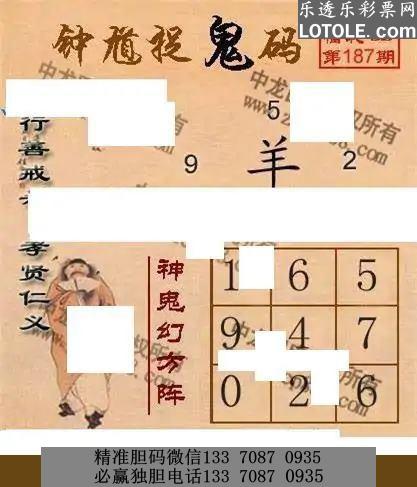 乐透乐彩票网
LOTOLE.COM
钟馗捉鬼码
第187期
5
9
羊
2
行善戒
孝贤仁义
神鬼幻方阵
1 6 5
9 4 7
0 2 6
精准胆码微信133 7087 0935
必赢独胆电话133 7087 0935